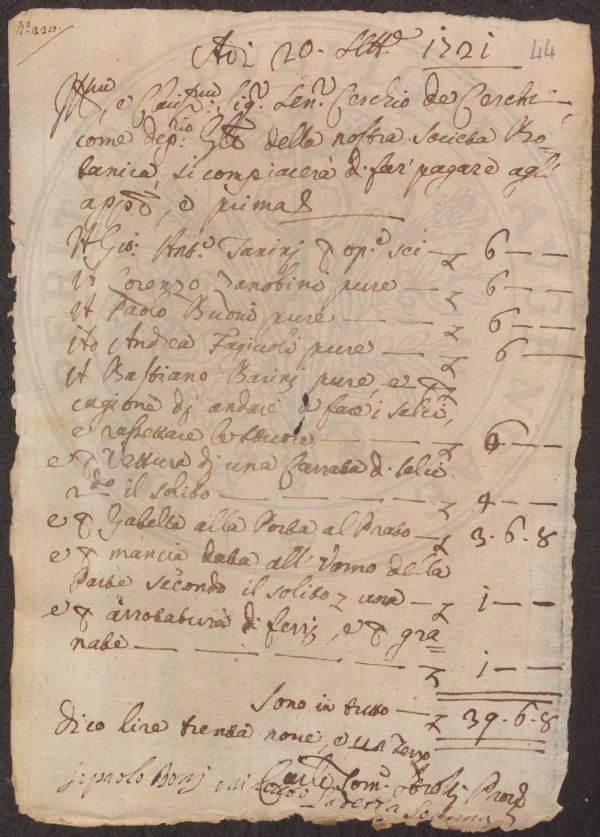 N.° 229. 44
Adi 20. Sett.e 1721
Ill.mo, e Clariss.mo Sig.r Sen.r Cerchio de Cerchi,
come dep.rio G.le della nostra Società Bo=
tanica, si compiacerà di far' pagare agl'
app.o, e prima
A Gio: Ant.o Tanini p op.e sei — £ 6 — —
A Lorenzo Zanobini pure — £ 6 — —
A Paolo Buoni pure — £ 6 — —
A Andrea Fagiuoli pure — £ 6 — —
A Bastiano Barinj pure, e p
cagione dj andare a fare i salci,
e rassettare le stuoie — £
e p Vettura dj una Carrata di salci
2.do il solito — £ 4 — —
e p Gabella alla Porta al Prato — £ 3. 6. 8
e p mancia data all' Uomo della
Parte secondo il solito £ una — £ 1 — —
e p arrotatura di ferrj, e p gra=
nate — £ 1 — —
Sono in tutto — £ 39. 6. 8
dico lire trenta nove, e un terzo